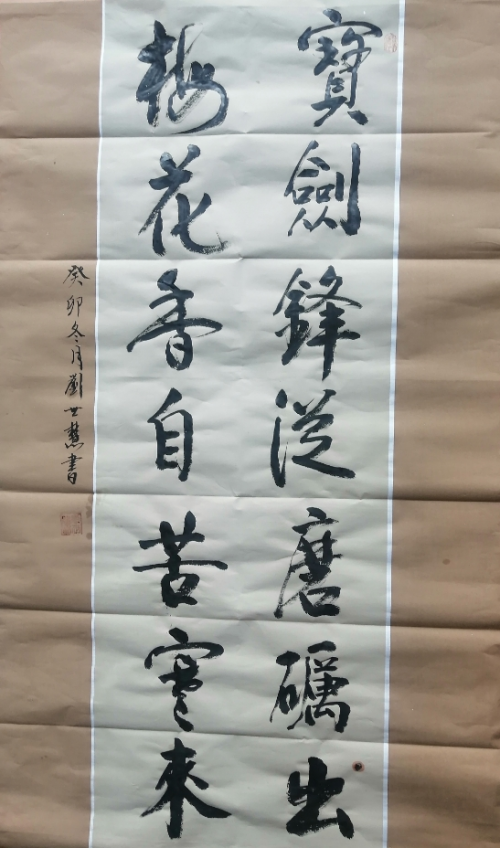 寶劍鋒從磨礪出
梅花香自苦寒來
癸卯冬月劉世慧書